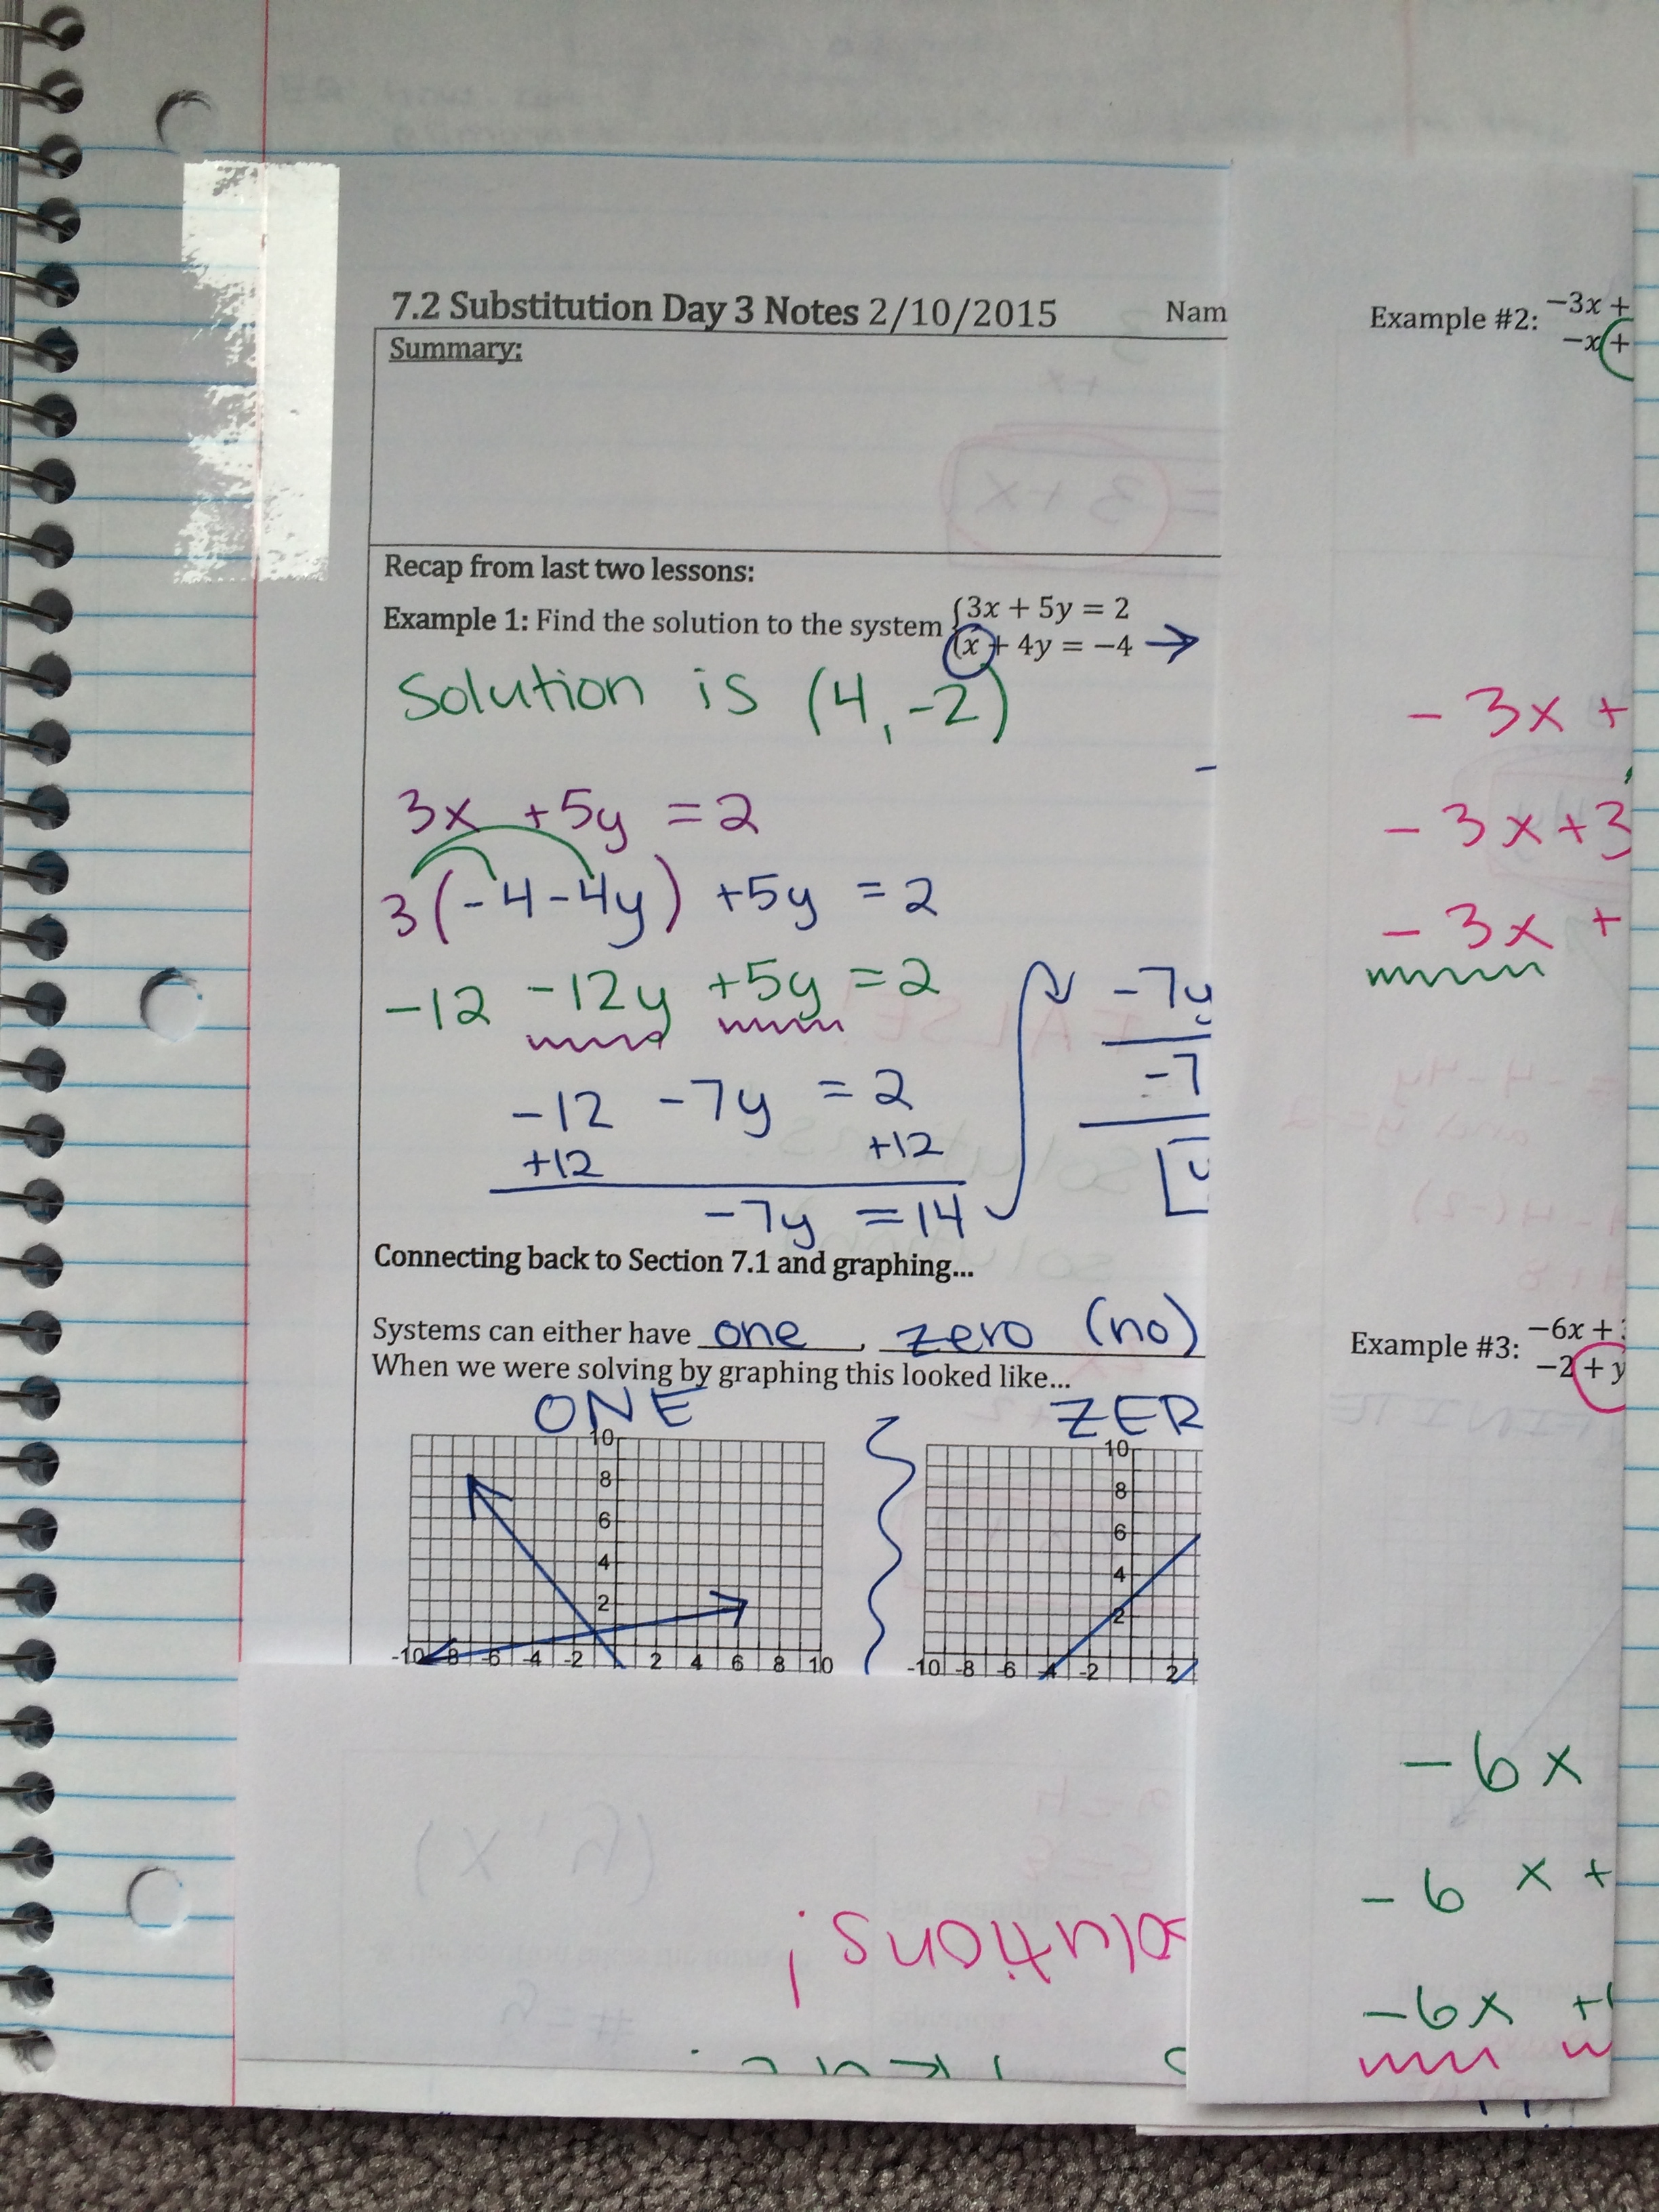 7.2 Substitution Day 3 Notes 2/10/2015 Nam
Summary:
Recap from last two lessons:
Example 1: Find the solution to the system {3x + 5y = 2
x + 4y = −4 →
Solution is (4, -2)
3x +5y = 2
3(-4-4y) +5y = 2
-12 -12y +5y = 2
-12 -7y = 2
+12 +12
-7y = 14
-7y
-7
Connecting back to Section 7.1 and graphing...
Systems can either have one, zero (no)
When we were solving by graphing this looked like...
ONE
10
8
6
4
2
-10 -8 -6 -4 -2 2 4 6 8 10
ZER
10
8
6
4
2
-10 -8 -6 -4 -2 2
olutions!
Example #2: −3x +
−x +
- 3x +
- 3x + 3
- 3x +
Example #3: −6x +
−2 + y
-6x
-6x +
-6x +